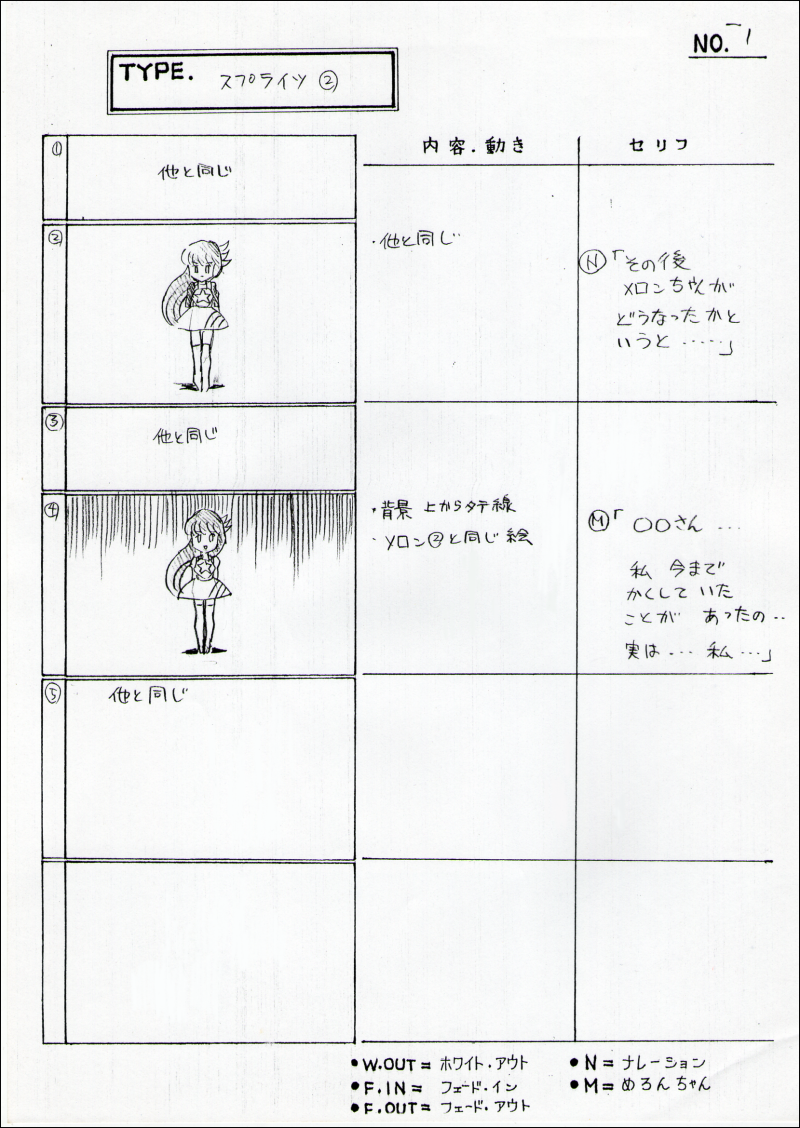 NO. 1
TYPE. スプライツ ②
内容.動き
セリフ
①
他と同じ
②
・他と同じ
Ⓝ「その後
メロンちゃんが
どうなったかと
いうと ‥‥‥」
③
他と同じ
④
・背景 上からタテ線
・メロン②と同じ絵
Ⓜ「〇〇さん …
私 今まで
かくして いた
ことが あったの‥
実は … 私 …」
⑤
他と同じ
●W.OUT= ホワイト.アウト
●F.IN= フェード.イン
●F.OUT= フェード.アウト
●N= ナレーション
●M= めろんちゃん